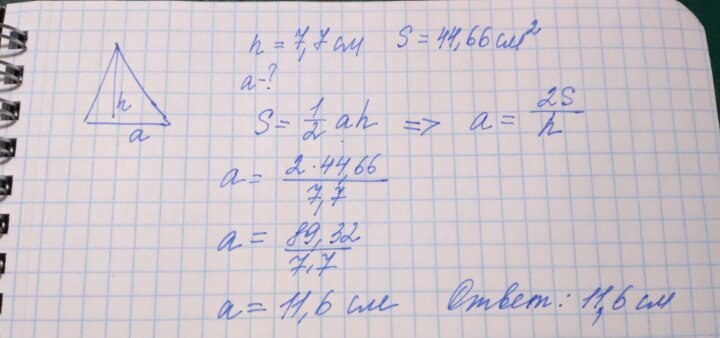 h = 7,7 см S = 44,66 см²
a - ?
h
a
S = 1/2 ah => a = 2S/h
a = 2·44,66/7,7
a = 89,32/7,7
a = 11,6 см Ответ: 11,6 см